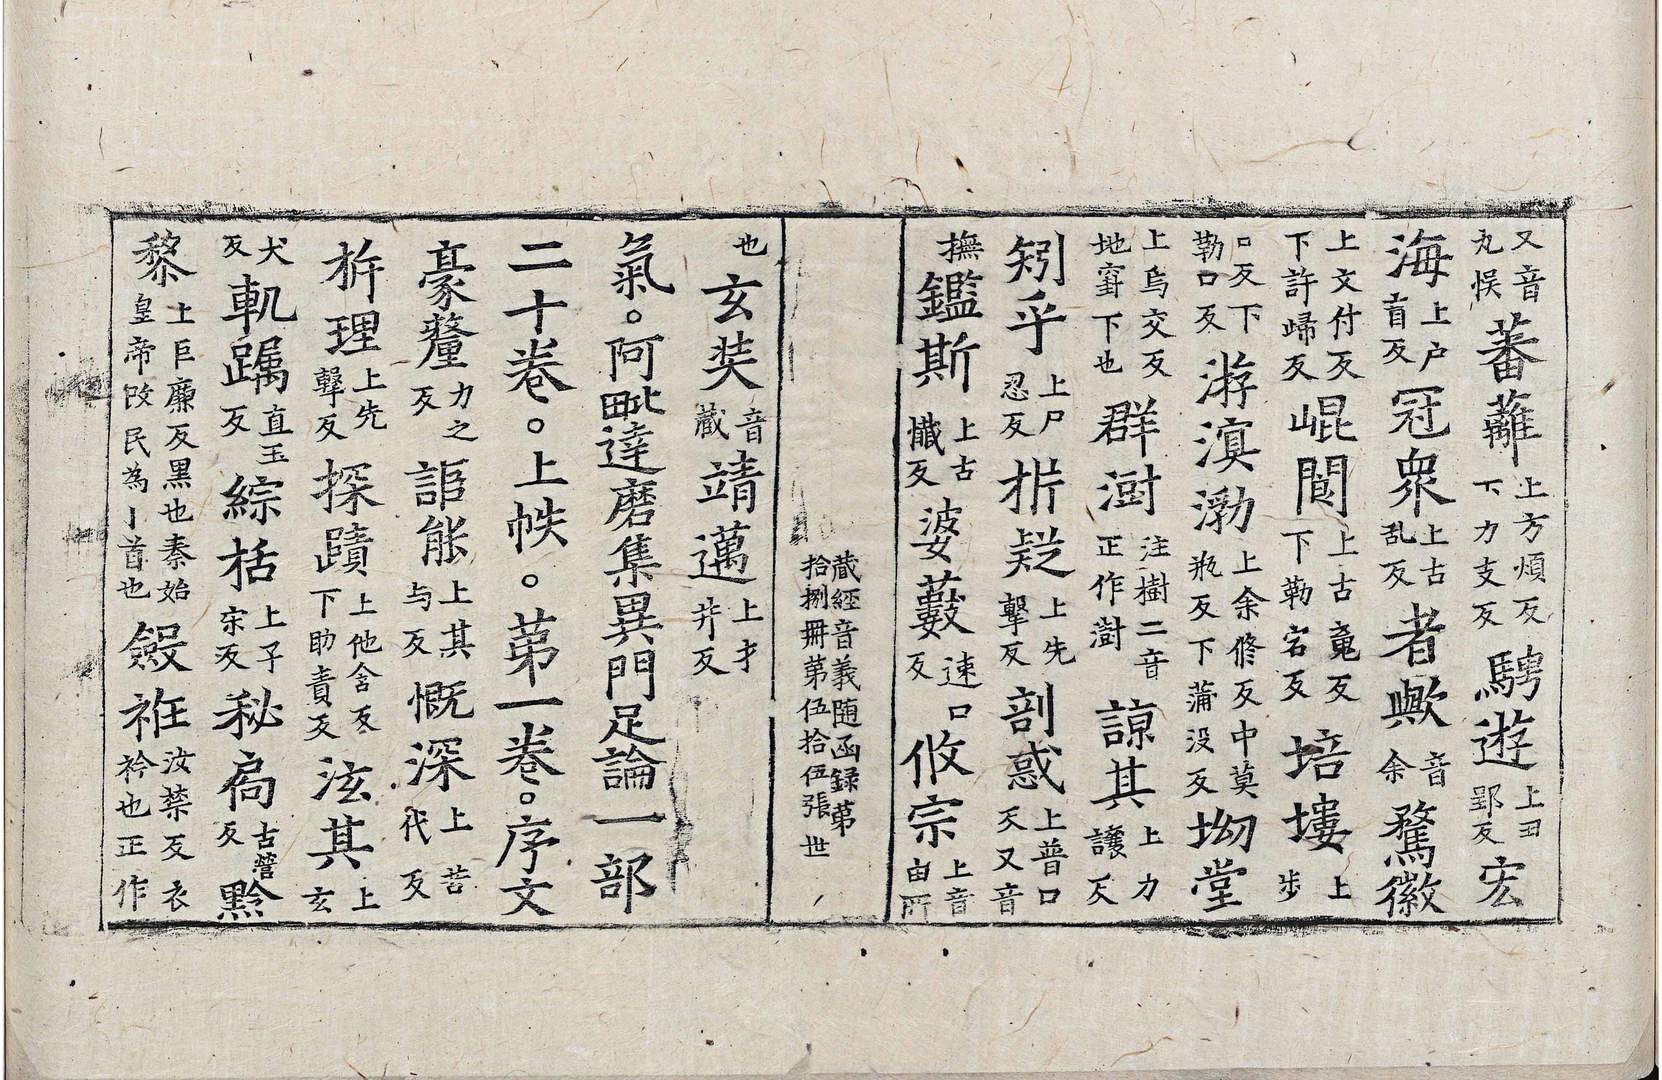 又音丸悞蕃蘺上方煩反下力支反騁遊上丑郢反宏
海上户盲反冠衆上古乱反者歟音余驁徽
上文付反下許歸反崐閬上古䰟反下勒宕反培塿上步
口反下勒口反㳺溟渤上余修反中莫瓶反下蒲没反坳堂
上烏交反地窐下也群澍注樹二音正作澍諒其上力讓反
矧乎上尸忍反㭊疑上先擊反剖惑上普口反又音
撫鑑斯上古懺反婆藪速口反攸宗上音由所
藏經音義随函録第
拾捌冊第伍拾伍張 世
也玄奘音藏靖邁上才井反
氣。阿毗達磨集異門足論一部
二十卷。上帙。第一卷。序文
豪氂力之反詎能上其与反慨深上苦代反
㭊理上先擊反探賾上他含反下助責反泫其上玄
犬反軌躅直玉反綜栝上子宋反秘扄古營反黔
黎上巨廉反黑也秦始皇帝改民為丨首也㱃袵汝禁反衣衿也正作